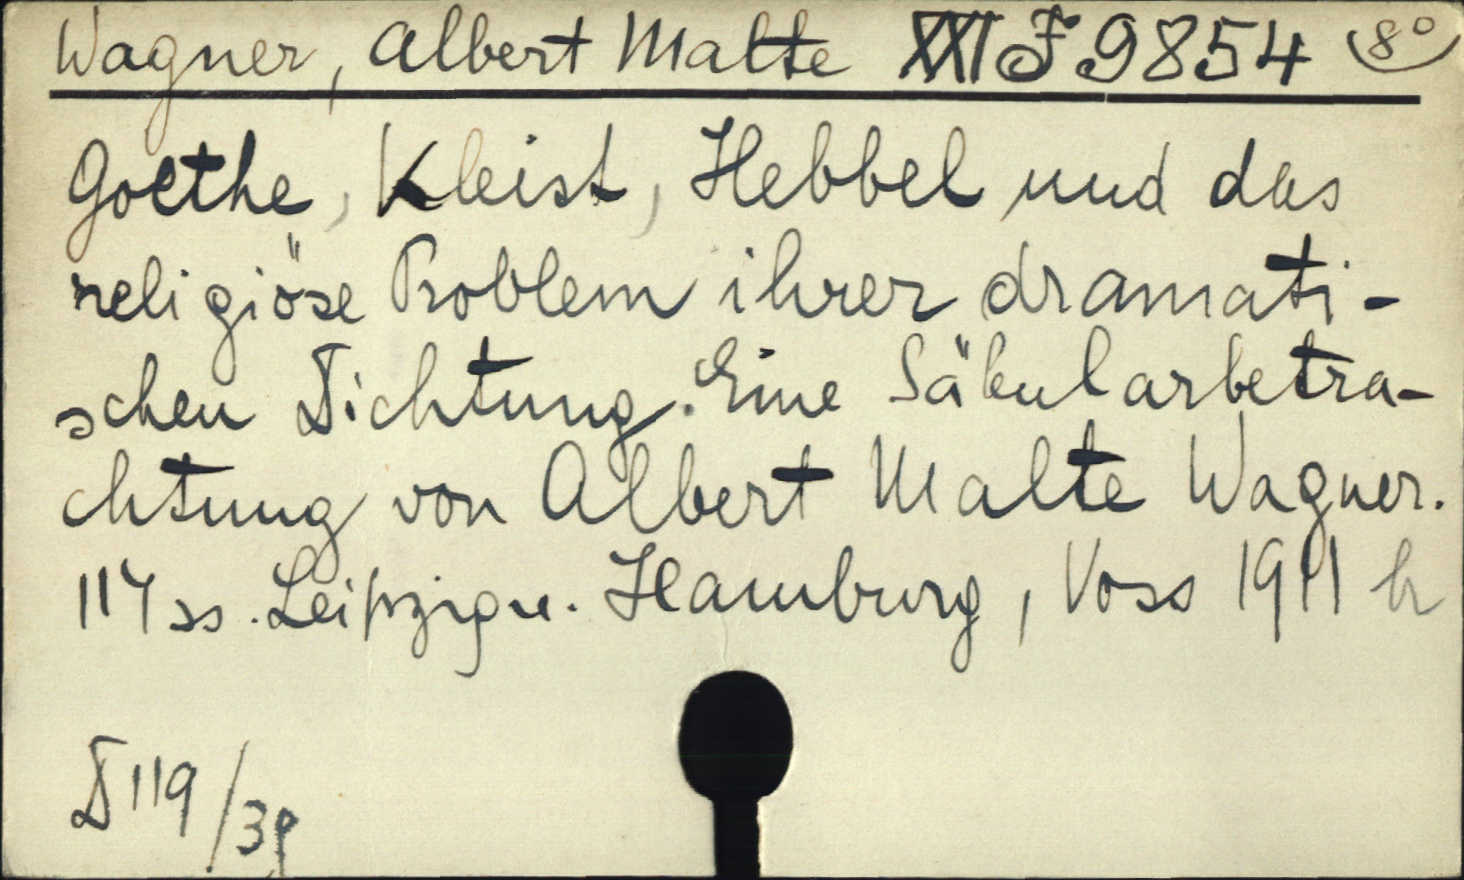 Wagner, Albert Malte XXI F 9854 8°
Goethe, Kleist, Hebbel und das
religiöse Problem ihrer dramati-
schen Dichtung. Eine Säkularbetra-
chtung von Albert Malte Wagner.
114 ss. Leipzig u. Hamburg, Voss 1911 br
D 119/39